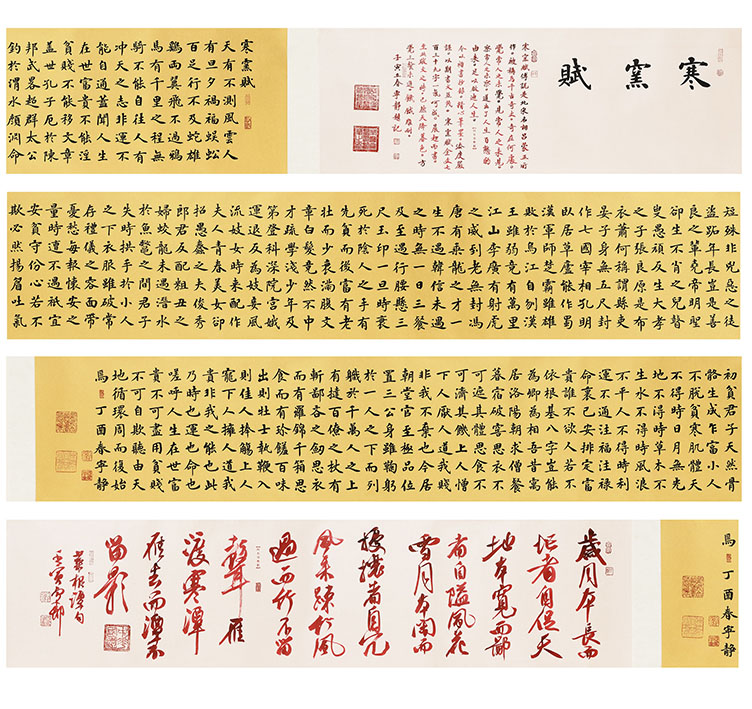 寒窯賦
寒窯賦傳說是北宋名相呂蒙正所
寒窯賦
天有不測風雲人
有旦夕禍福蜈蚣
百足行不及蛇雄
鷄兩翼飛不過鴉
馬有千里之程無
騎不能自往人有
冲天之志非運不
能自通蓋聞人生
在世富貴不能淫
貧賤不能移文章
蓋世孔子厄於陳
邦武畧超群太公
釣於渭水顏淵命
短殊非兇惡之徒
盗跖年長豈是善
良之輩堯帝明聖
卻生不肖之兒瞽
叟愚頑反生大孝
之子張良原是布
衣蕭何稱謂縣吏
晏子身無五尺封
作七國宰相孔明
臥居草廬能作蜀
漢軍師楚霸雖雄
敗於烏江自刎漢
王雖弱竟有萬里
江山李廣有射虎
之威到老無封馮
唐有乘龍之才一
生不遇韓信未遇
之時無一日三餐
及至遇行腰懸三
尺玉印一旦時衰
死於陰人之手有
先貧而後富有老
壯而少衰滿腹文
章白髮竟然不中
才疏學淺少年及
第登科深院宮娥
運退反為妓妾風
流妓女時來配作
夫人青春美女卻
招愚蠢之夫俊秀
郎君反配粗丑之
婦蛟龍未遇潜水
於魚鼈之間君子
失時拱手於小人
之下衣服雖破常
存禮儀之容面帶
憂愁每抱懷安之
量時遭不遇祇宜
安貧守份心若不
欺必然揚眉吐氣
初貧君子天然骨
骼生成乍富小人
不脱貧寒肌體天
不得時日月無光
地不得時草木不
生水不得時風浪
不平人不得時利
運不通注福注禄
命裏已安排定富
貴誰不欲人若不
依根基八字豈能
為卿為相吾昔寓
居洛陽朝求僧餐
暮宿破窯思衣不
可遮其體思食不
可濟其饑上人憎
下人厭人道我賤
非我不棄也今居
朝堂官至極品位
置三公身雖鞠躬
於一人之下而列
職於千萬人之上
有撻百僚之杖有
斬鄙吝之劒思衣
而有羅錦千箱思
食而有珍饈百味
出則壯士執鞭入
則佳人捧觴上人
寵下人擁人道我
貴非我之能也此
乃時也運也命也
嗟呼人生在世富
貴不可盡用貧賤
不可自欺聽由天
地循環周而復始
焉 丁酉春寧静
焉 丁酉春寧静
歲月本長而
忙者自促天
地本寬而鄙
者自隘風花
雪月本閑而
擾攘者自冗
風來疎竹風
過而竹不留
聲 雁
渡寒潭
雁去而潭不
留影
菜根譚句